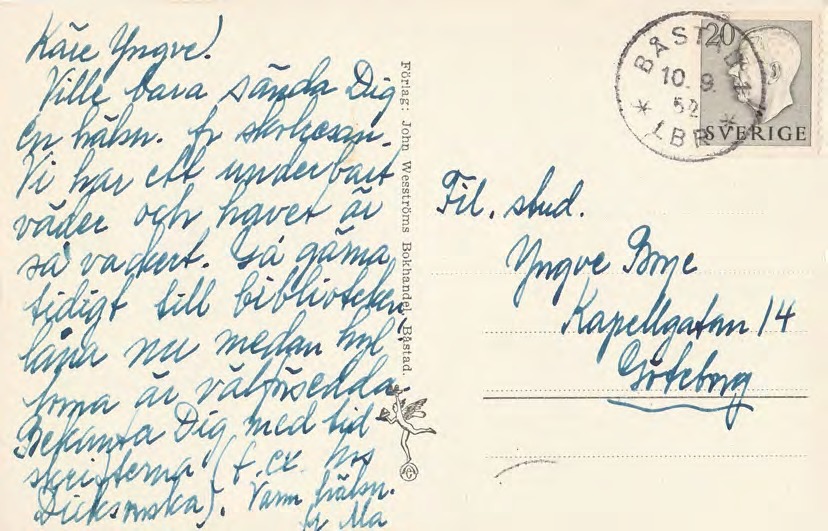 Käre Yngve!
Ville bara sända Dig
en hälsn. fr
Vi har ett underbart
väder och havet är
så vackert. Gå gärna
tidigt till biblioteken,
låna nu medan hyl-
lorna är välförsedda.
Bekanta Dig med tid
skrifterna (t.ex. hos
Dicksonska). Varm hälsn.
fr Ma
Förlag: John Wesströms Bokhandel, Båstad.
20
SVERIGE
BÅSTAD
10. 9.
52
* LBR *
Fil. stud.
Yngve
Kapellgatan 14
Göteborg